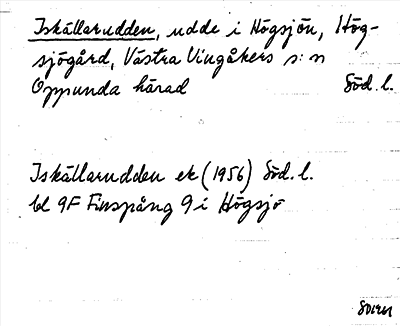 Iskällarudden, udde i Högsjön, Hög-
sjögård, Västra Vingåkers s:n
Oppunda härad Söd.l.
Iskällarudden ek (1956) Söd.l.
bl 9F Finspång 9 i Högsjö